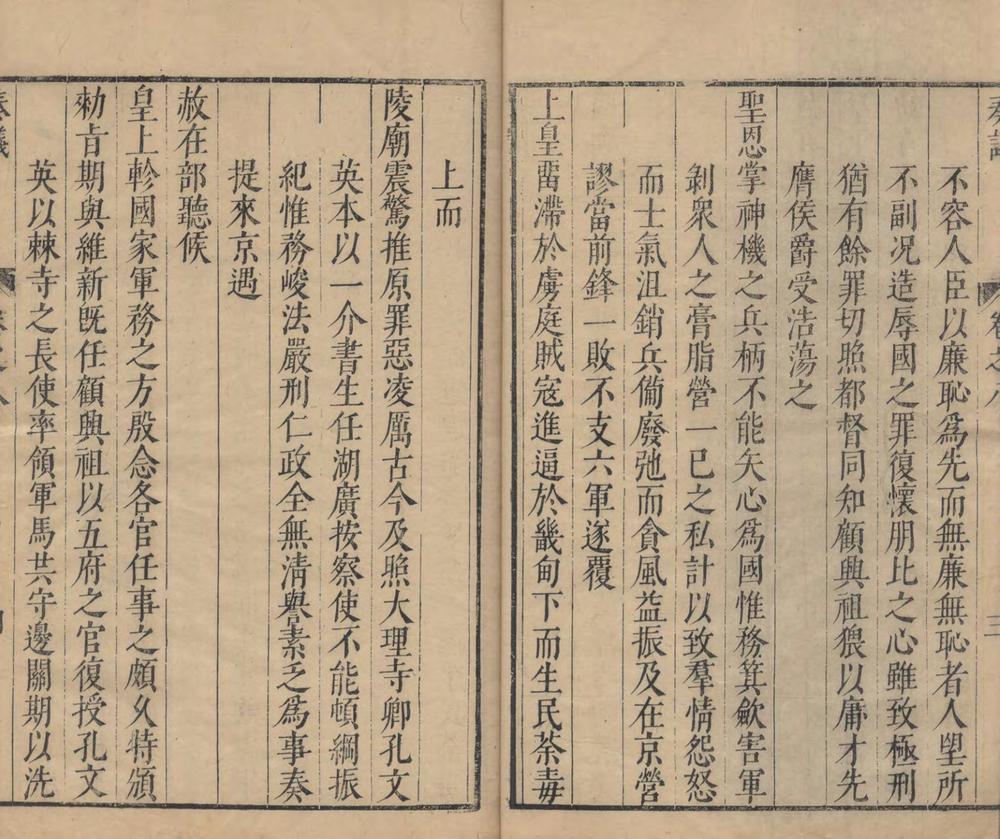 奏議
卷之八
三
不容人臣以廉恥爲先而無廉無恥者人望所
不副况造辱國之罪復懷朋比之心雖致極刑
猶有餘罪切照都督同知顧興祖猥以庸才先
膺侯爵受浩蕩之
聖恩掌神機之兵柄不能矢心爲國惟務箕歛害軍
剝衆人之膏脂營一已之私計以致羣情怨怒
而士氣沮銷兵備廢弛而貪風益振及在京營
謬當前鋒一敗不支六軍遂覆
上皇畱滯於虜庭賊寇進逼於畿甸下而生民荼毒
上而
陵廟震驚推原罪惡凌厲古今及照大理寺卿孔文
英本以一介書生任湖廣按察使不能頓綱振
紀惟務峻法嚴刑仁政全無清譽素乏爲事奏
提來京遇
赦在部聽候
皇上軫國家軍務之方殷念各官任事之頗乆特頒
勑旨期與維新旣任顧興祖以五府之官復授孔文
英以棘寺之長使率領軍馬共守邊關期以洗
奏議
卷之八